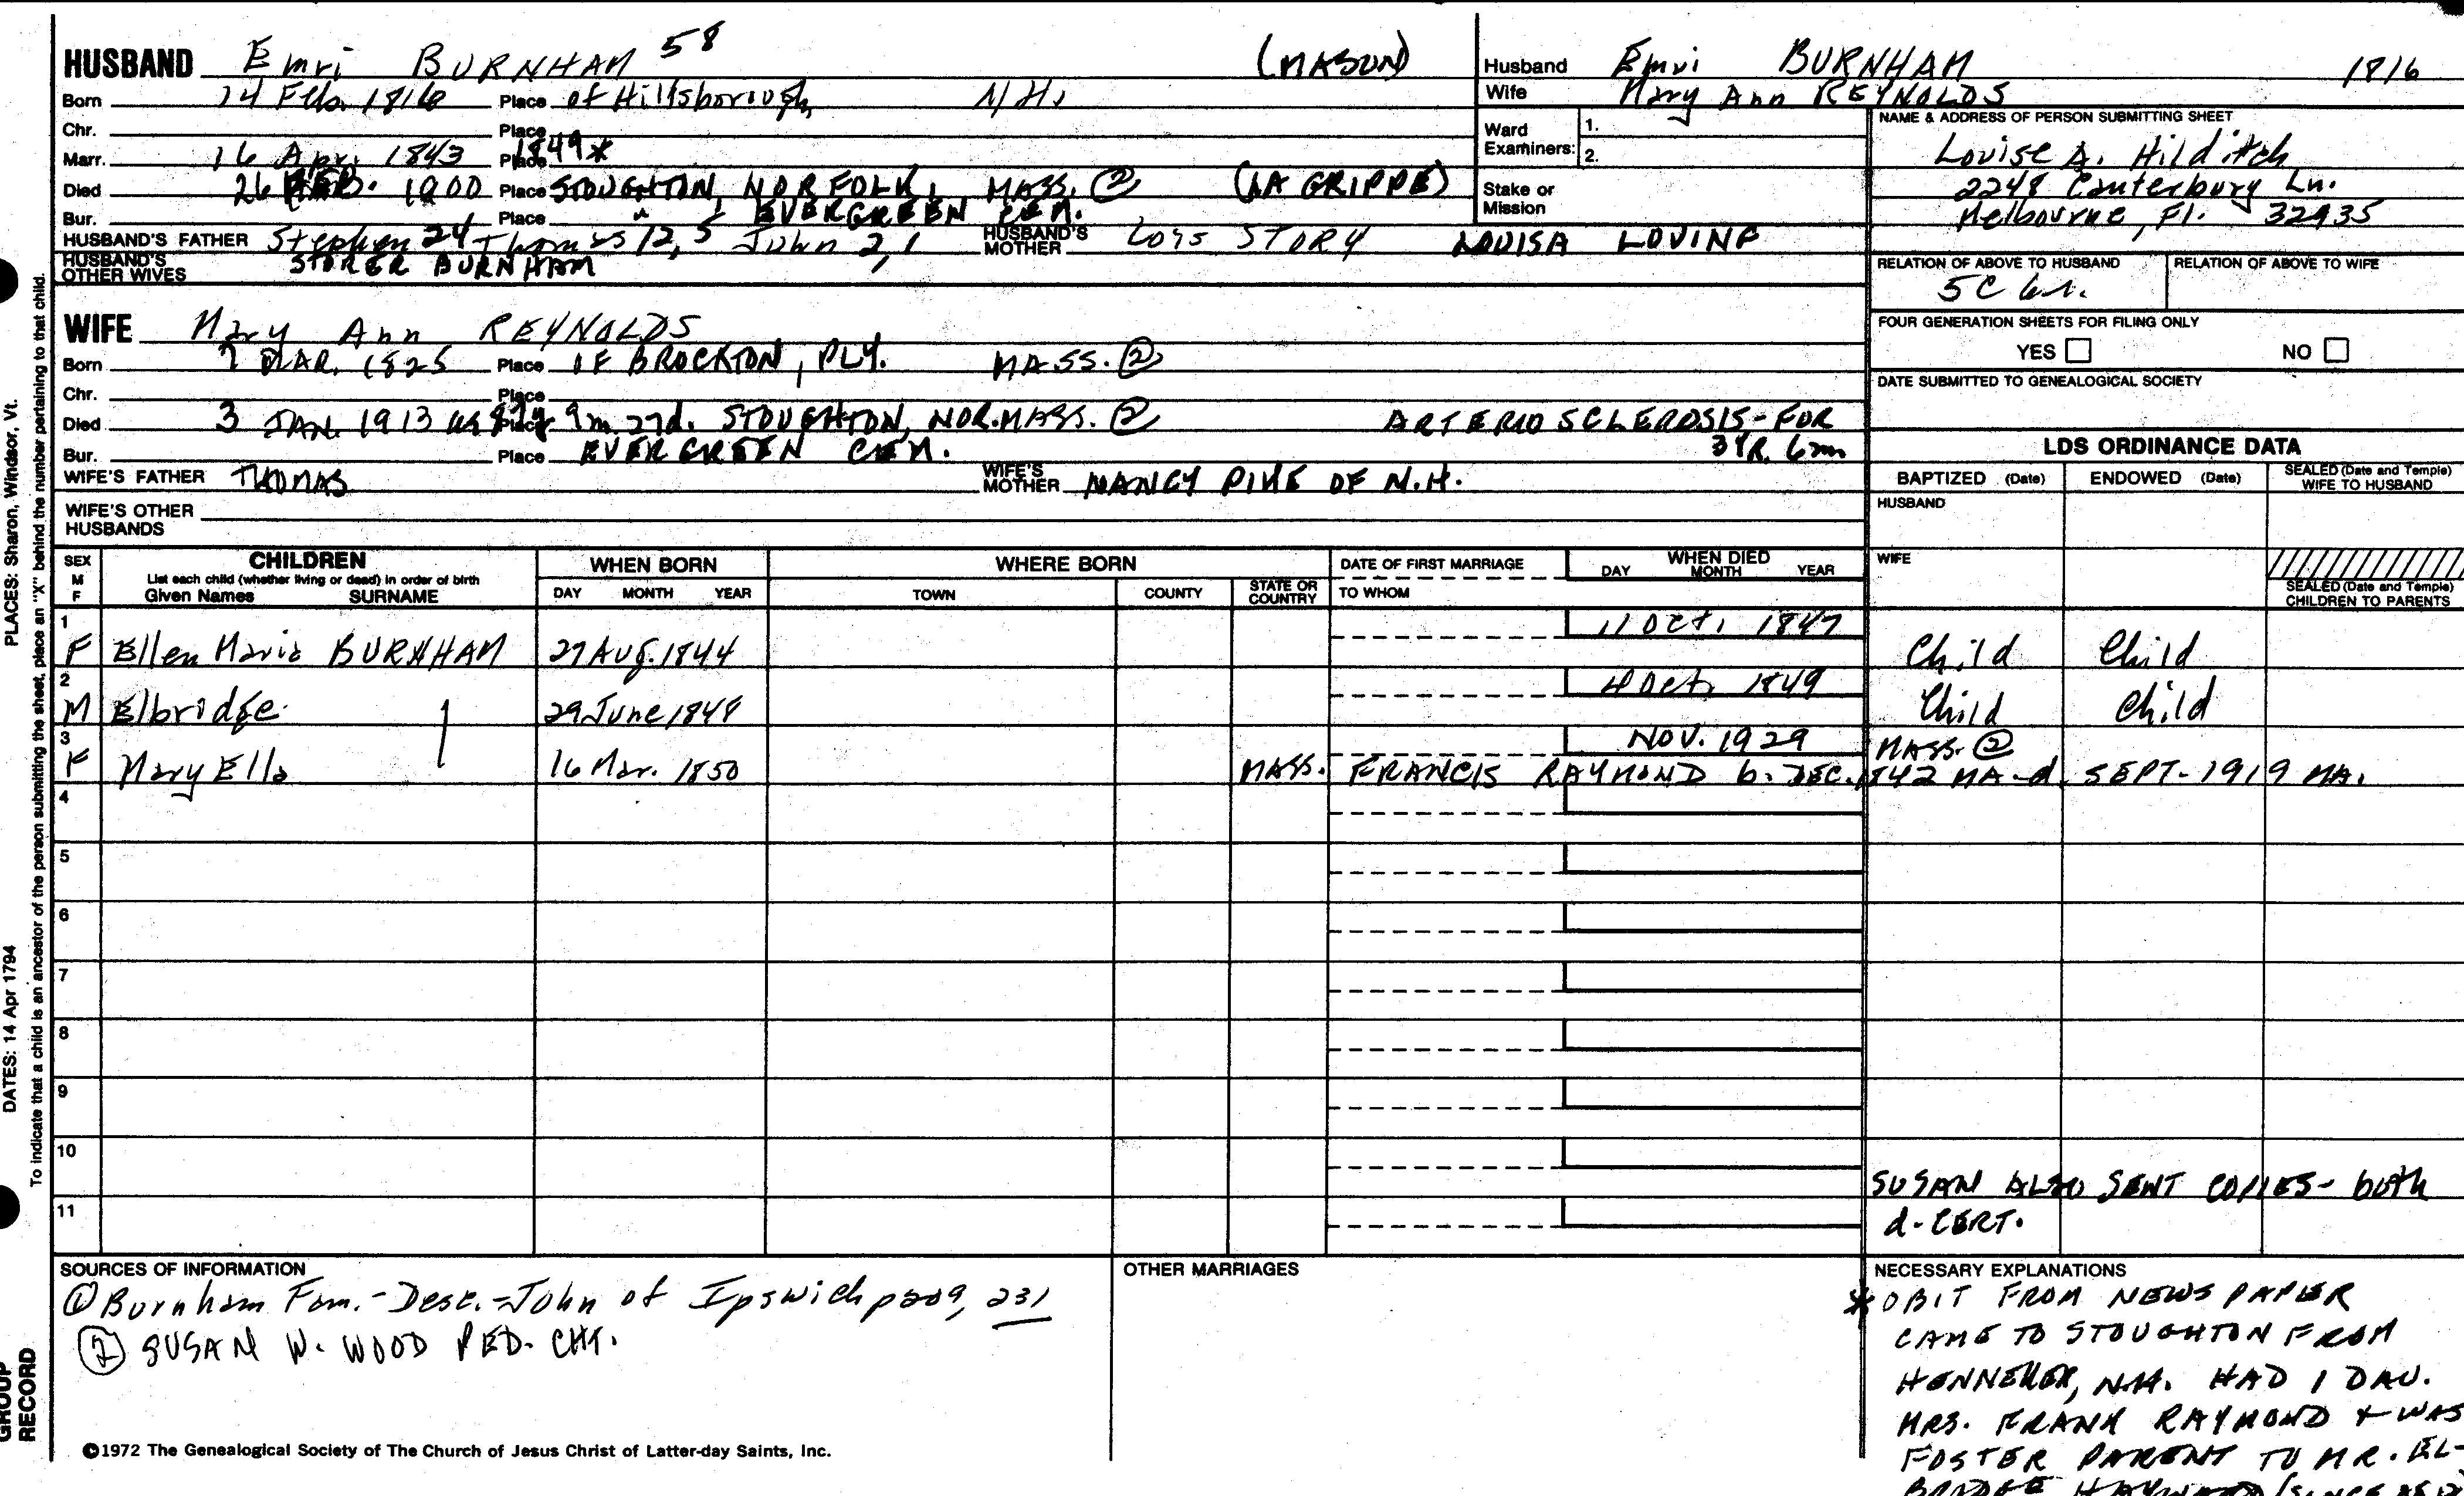 HUSBAND Emri BURNHAM 58 (MASON)
Born 14 Feb. 1816 Place of Hillsborough, N.H.
Chr. Place
Marr. 16 Apr. 1843 Place 1849*
Died 26 FEB. 1900 Place STOUGHTON, NORFOLK, MASS. ② (LA GRIPPE)
Bur. Place " EVERGREEN CEM.
HUSBAND'S FATHER Stephen 24 Thomas 12, 5 John 2, 1 HUSBAND'S MOTHER Lois STORY LOUISA
HUSBAND'S OTHER WIVES STORER BURNHAM
WIFE Mary Ann REYNOLDS
Born 7 MAR. 1825 Place OF BROCKTON, PLY. MASS. ②
Chr. Place
Died 3 JAN. 1913 Place 9m 27d. STOUGHTON, NOR. MASS. ② ARTERIO SCLEROSIS - FOR
3 YR. 6m
Bur. Place EVERGREEN CEM.
WIFE'S FATHER THOMAS WIFE'S MOTHER NANCY PIKE OF N.H.
WIFE'S OTHER HUSBANDS
Husband Emri BURNHAM 1816
Wife Mary Ann REYNOLDS
Ward Examiners: 1.
2.
Stake or Mission
NAME & ADDRESS OF PERSON SUBMITTING SHEET
Louise A. Hilditch
2248 Canterbury Ln.
Melbourne, Fl. 32935
RELATION OF ABOVE TO HUSBAND RELATION OF ABOVE TO WIFE
5C
FOUR GENERATION SHEETS FOR FILING ONLY
YES NO
DATE SUBMITTED TO GENEALOGICAL SOCIETY
LDS ORDINANCE DATA
BAPTIZED (Date) ENDOWED (Date) SEALED (Date and Temple) WIFE TO HUSBAND
HUSBAND
WIFE
SEALED (Date and Temple) CHILDREN TO PARENTS
SEX M F
CHILDREN
List each child (whether living or dead) in order of birth
Given Names SURNAME
WHEN BORN
DAY MONTH YEAR
WHERE BORN
TOWN COUNTY STATE OR COUNTRY
DATE OF FIRST MARRIAGE
TO WHOM
WHEN DIED
DAY MONTH YEAR
1 11 Oct. 1847
F Ellen Maria BURNHAM 27 Aug. 1844 Child Child
2 4 Oct. 1849
M Elbridge 29 June 1848 Child Child
3 NOV. 1929 MASS. ②
F Mary Ella 16 Mar. 1850 MASS. FRANCIS RAYMOND b. DEC. 1842 MA - d. SEPT - 1919 MA.
4
5
6
7
8
9
10
11
SUSAN ALSO SENT COPIES - both
d - CERT.
SOURCES OF INFORMATION
① Burnham Fam. - Desc. - John of Ipswich p 209, 231
② SUSAN W. WOOD PED. CHT.
OTHER MARRIAGES
NECESSARY EXPLANATIONS
* OBIT FROM NEWSPAPER
CAME TO STOUGHTON FROM
HENNEKER, N.H. HAD 1 DAU.
MRS. FRANK RAYMOND + WAS
FOSTER PARENT TO MR. EL-
©1972 The Genealogical Society of The Church of Jesus Christ of Latter-day Saints, Inc.
PLACES: Sharon, Windsor, Vt.
DATES: 14 Apr 1794
To indicate that a child is an ancestor of the person submitting the sheet, place an "X" behind the number pertaining to that child.
GROUP
RECORD